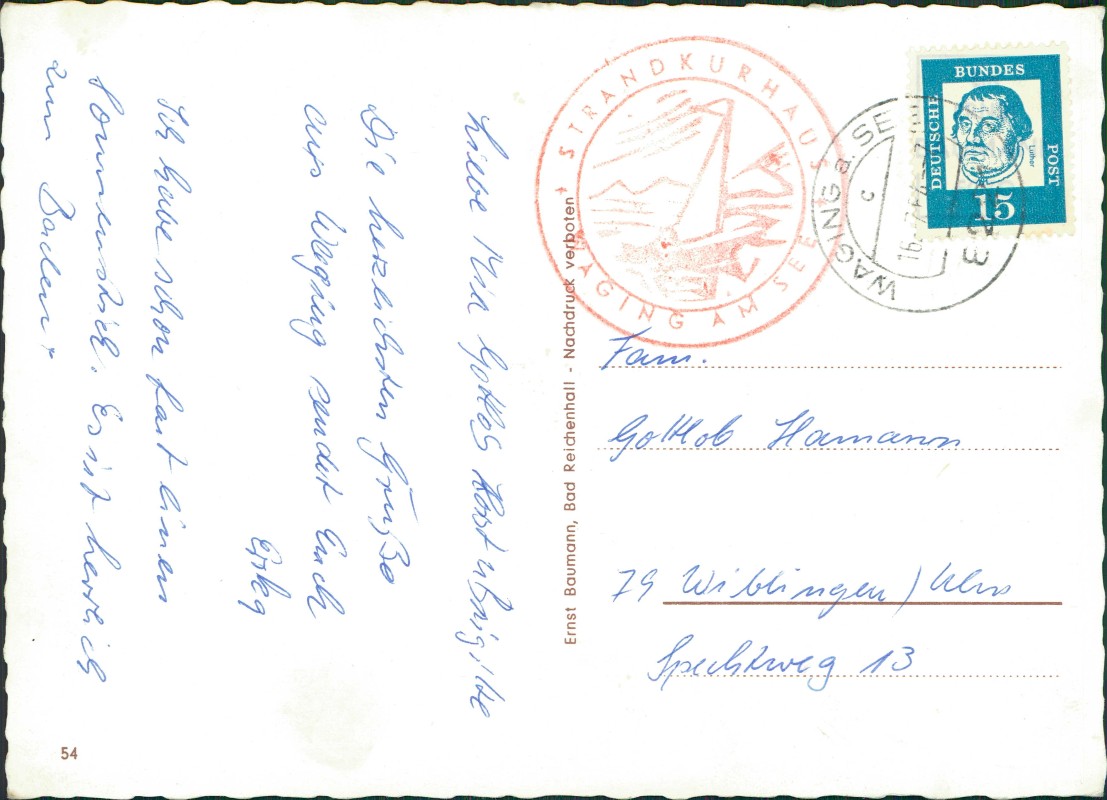 Liebe
Gottlob Horst u. Brigitte
Die herzlichsten Grüße
aus Waging sendet Euch
Ich habe schon fast einen
Sonnenstich. Es ist herrlich
zum Baden.
54
Ernst Baumann, Bad Reichenhall - Nachdruck verboten
STRANDKURHAUS
WAGING AM SEE
WAGING a. SEE
c
DEUTSCHE
BUNDES
POST
Luther
15
Fam.
Gottlob Hamann
79 Wiblingen / Ulm
Spechtweg 13